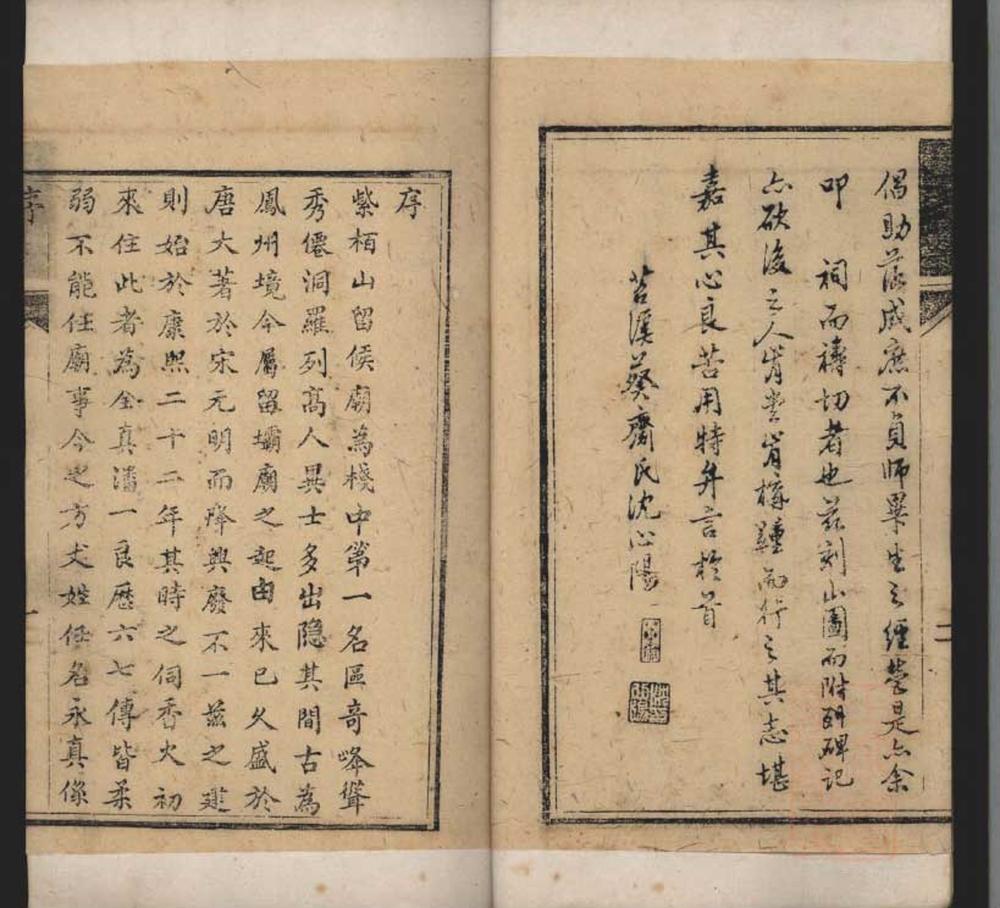 倡助落成庶不負師畢生之經營是亦余
叩　祠而禱切者也茲刻山圖而附碑記
亦欲後之人肯堂肯構踵而行之其志堪
嘉其心良苦用特弁言於首
苕溪葵齋氏沈心陽
序
紫栢山留侯廟為棧中第一名區奇峰聳
秀僊洞羅列高人異士多出隐其間古為
鳳州境今屬留壩廟之起由來已久盛於
唐大著於宋元明而降興廢不一茲之建
則始於康熙二十二年其時之伺香火初
來住此者為全真潘一良歷六七傳皆柔
弱不能任廟事今之方丈姓任名永真係
序
一
二